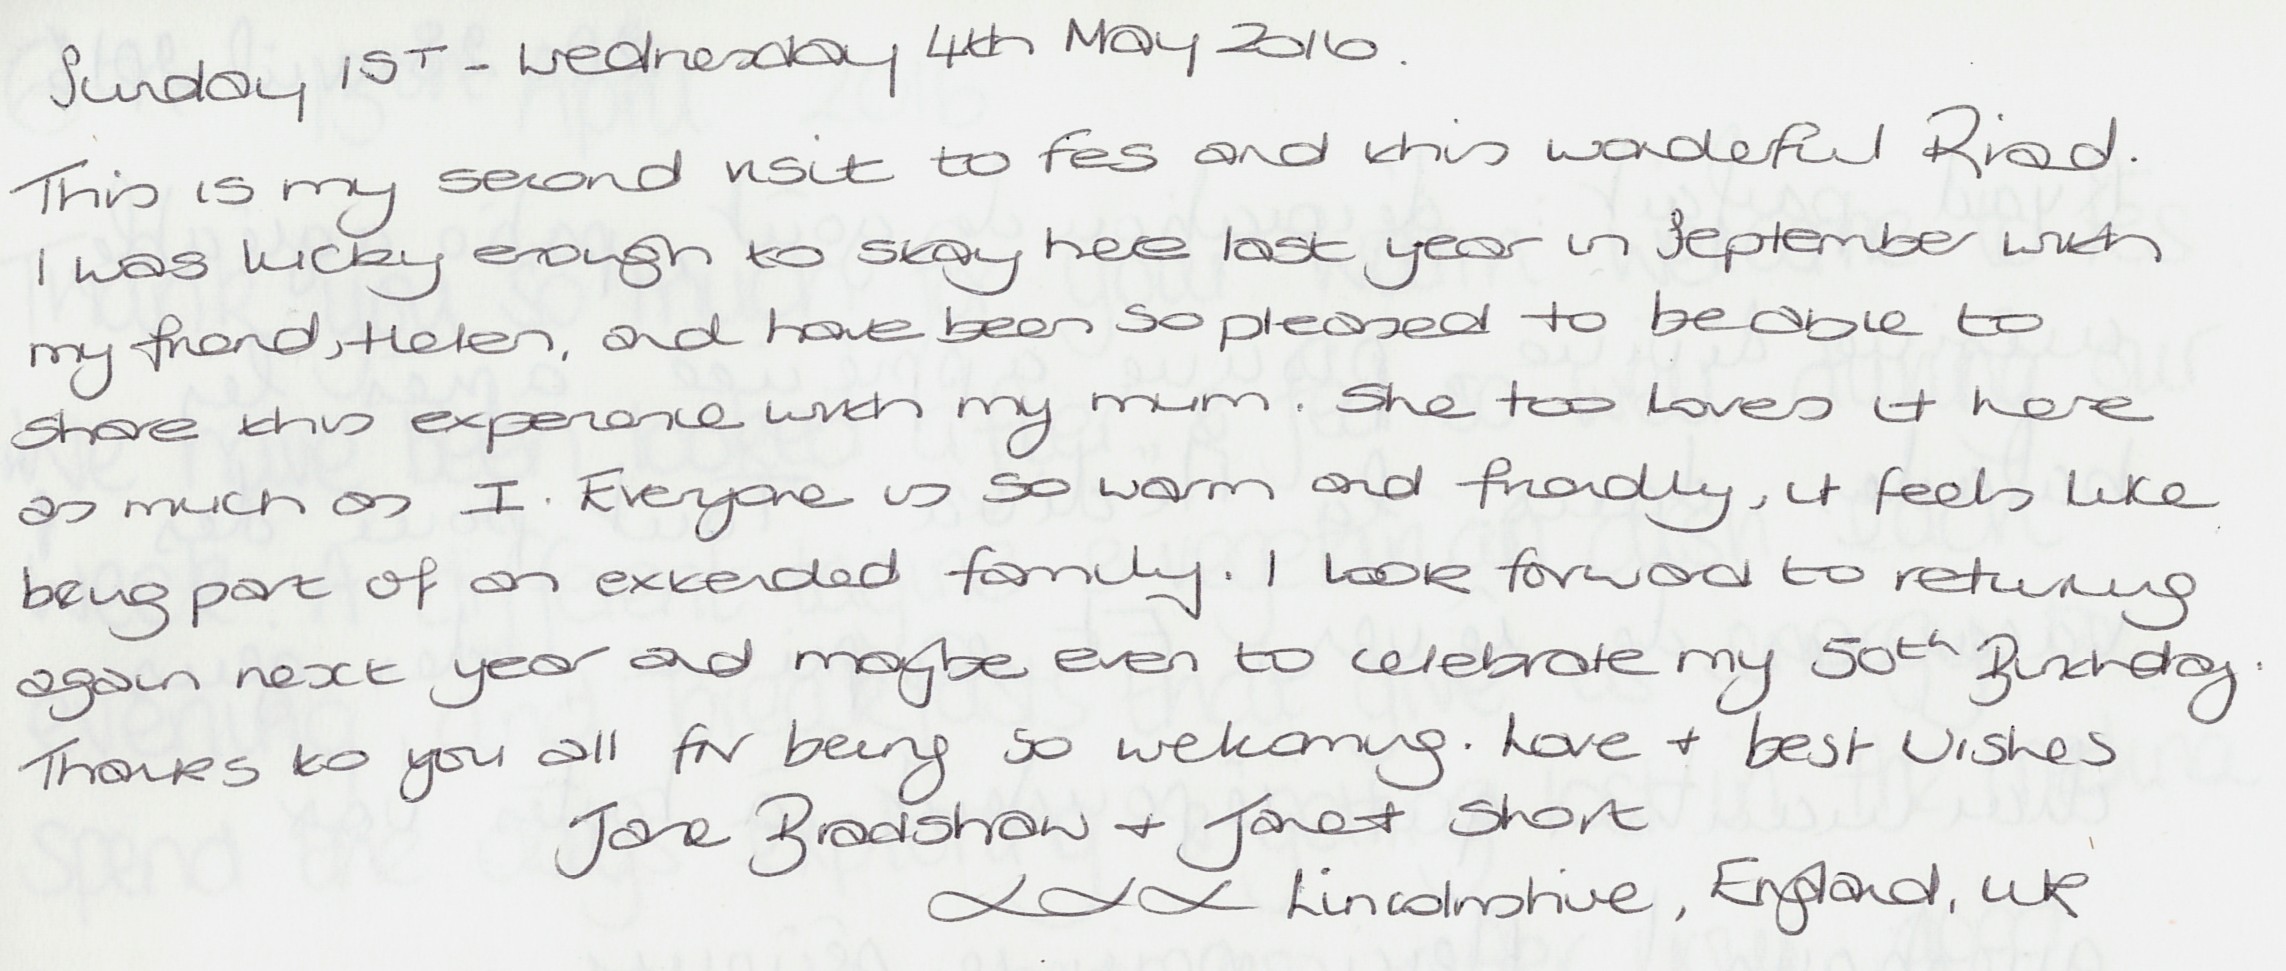 Sunday 1ST - Wednesday 4th May 2016.
This is my second visit to Fes and this wonderful Riad.
I was lucky enough to stay here last year in September with
my friend, Helen, and have been so pleased to be able to
share this experience with my mum. She too loves it here
as much as I. Everyone is so warm and friendly, it feels like
being part of an extended family. I look forward to returning
again next year and maybe even to celebrate my 50th Birthday.
Thanks to you all for being so welcoming. Love + best wishes
Jane Bradshaw + Janet Short
xxx Lincolnshire, England, UK